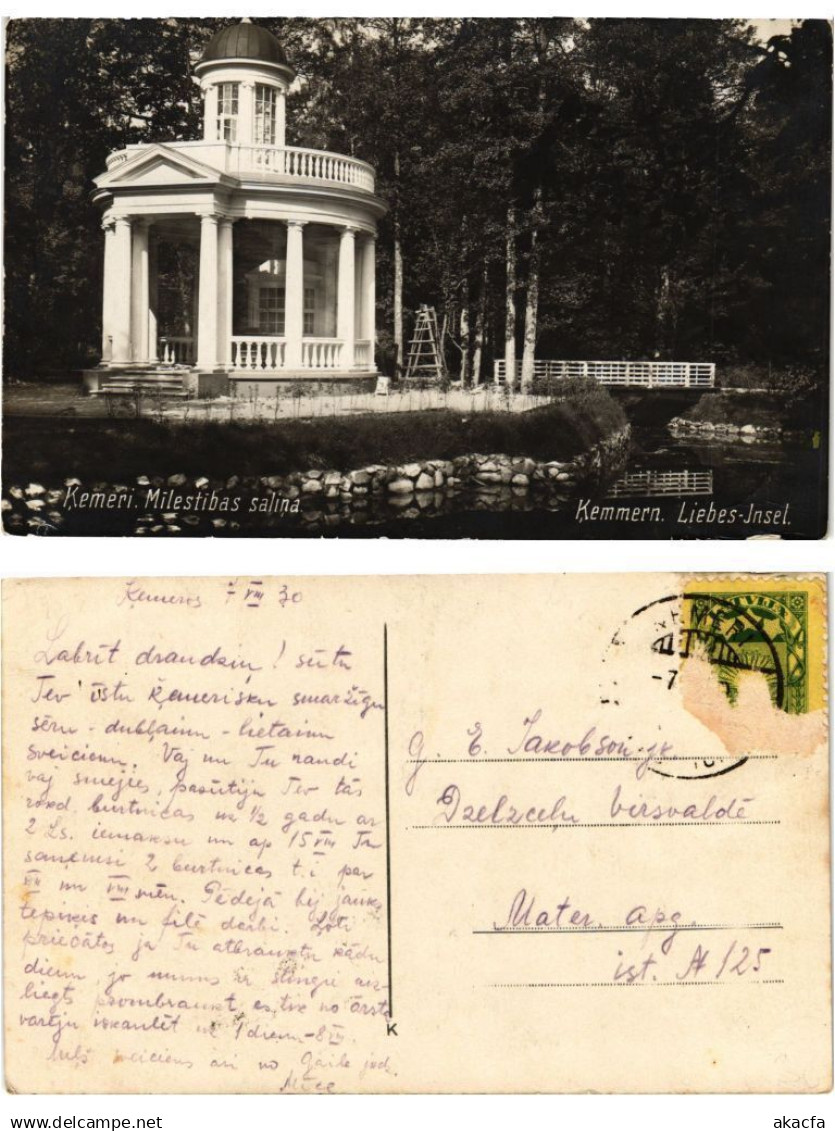 Ķemeri. Mīlestības saliņa.
Ķemmern. Liebes-Insel.
Ķemeros 7 VIII 30
Labrīt draudziņ! sūtu
Tev īstu ķemerišķu smaržīgu
sēru - dubļainu - lietainu
sveicienu. Vaj nu Tu raudi
vaj smejies, pasūtīju Tev tās
rokd. burtnīcas uz 1/2 gadu ar
2 Ls. iemaksu un ap 15 VIII Tu
saņemsi 2 burtnīcas t.i par
VII un VIII mēn. Pēdējā bij jauka
tepiķis un filē darbi. Ļoti
priecātos ja Tu atbrauktu kādu
dienu, jo mums ir stingri aiz-
liegts prombraukt, es tik no ārsta
varēju izkaulēt uz 1 dienu - 8 VIII.
sveiciens arī no
g. E. Jakobson jr.
Dzelzceļu virsvaldē
Mater. apg.
ist. № 125
K
akacfa www.delcampe.net